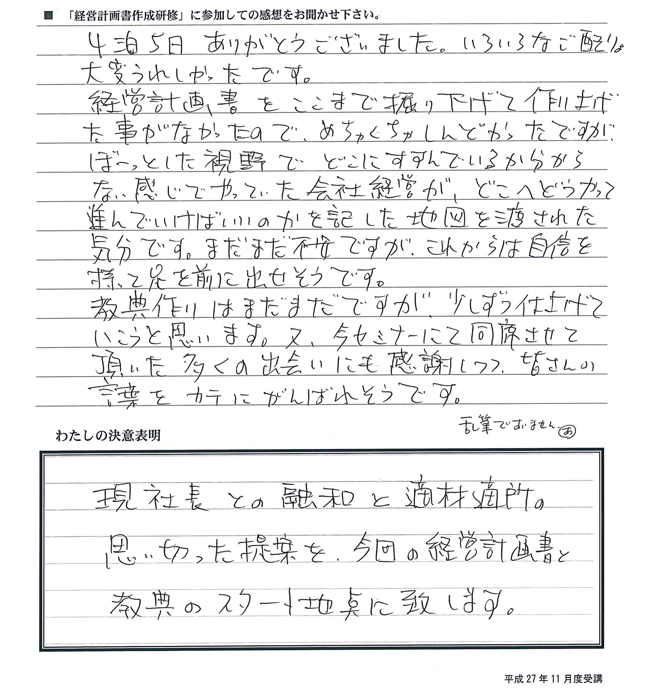 ■ 「経営計画書作成研修」に参加しての感想をお聞かせ下さい。
4泊5日 ありがとうございました。いろいろなご配りょ
大変うれしかったです。
経営計画書をここまで掘り下げて作り上げ
た事がなかったので、めちゃくちゃしんどかったですが、
ぼーっとした視野でどこにすすんでいるか分から
ない感じでやっていた会社経営が、どこへどうやって
進んでいけばいいのかを記した地図を渡された
気分です。まだまだ不安ですが、これからは自信を
持って足を前に出せそうです。
教典作りはまだまだですが、少しずつ仕上げて
いこうと思います。又、今セミナーにて同席させて
頂いた多くの出会いにも感謝しつつ、皆さんの
言葉をカテにがんばれそうです。
乱筆ですいません
わたしの決意表明
現社長との融和と適材適所の
思い切った提案を、今回の経営計画書と
教典のスタート地点に致します。
平成27年11月度受講